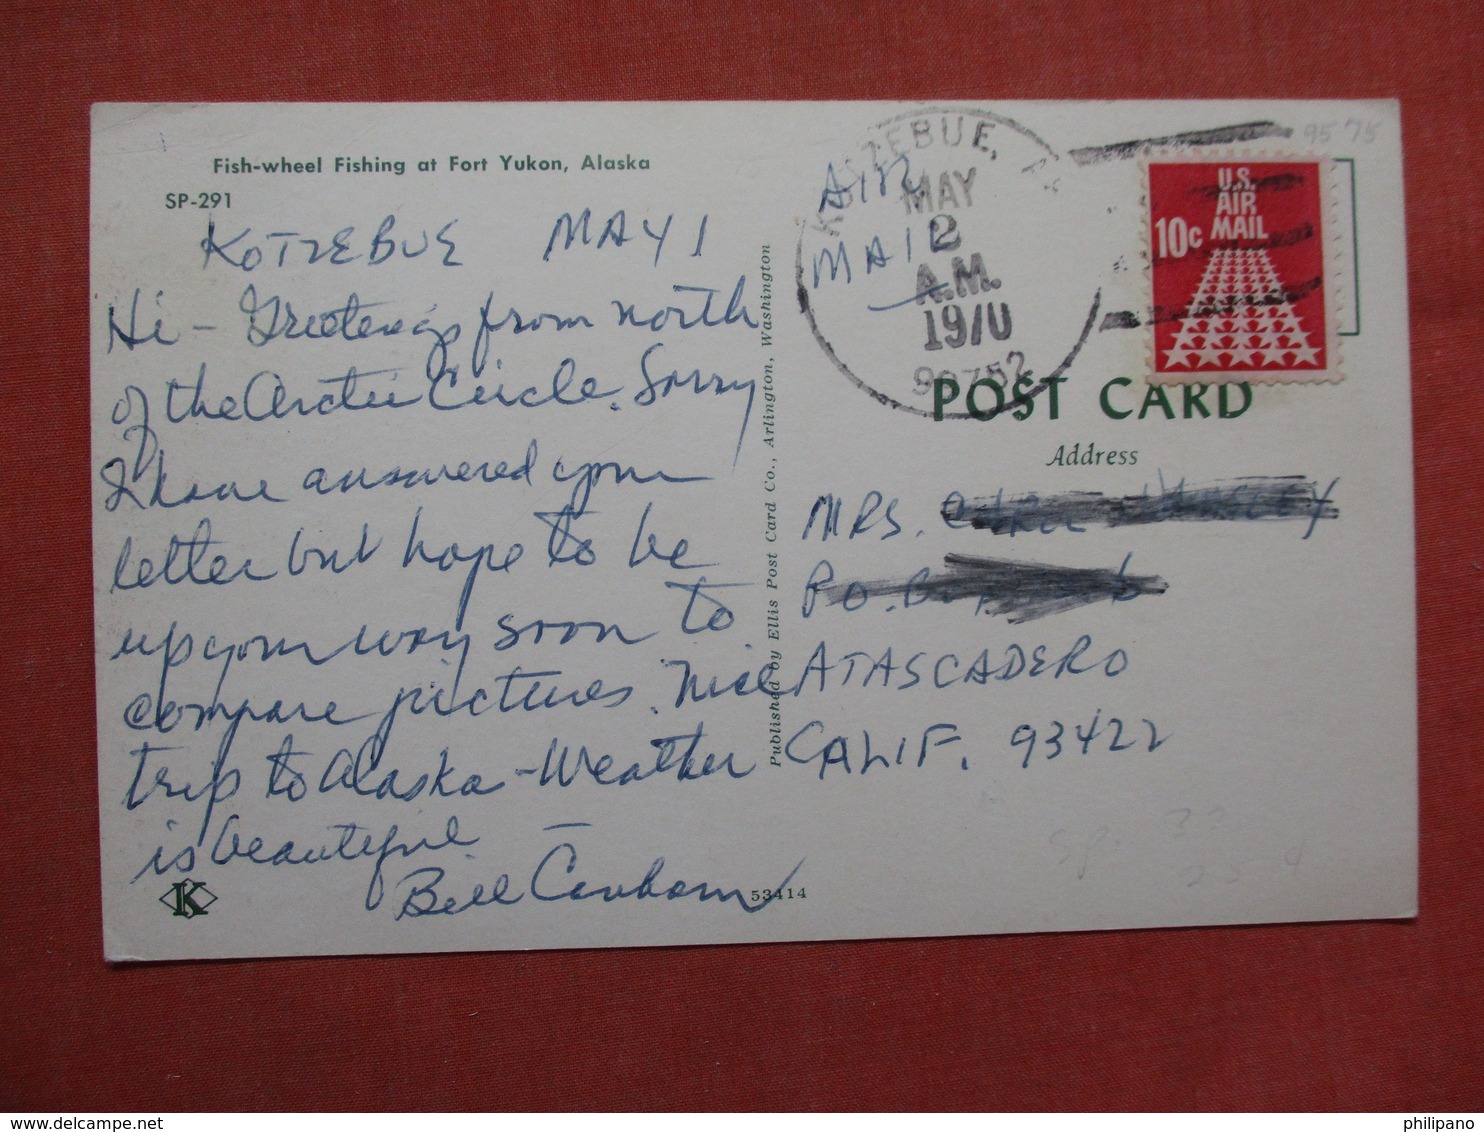 Fish-wheel Fishing at Fort Yukon, Alaska
SP-291
KOTZEBUE MAY 1
Hi - Greetings from north
of the Arctic Circle. Sorry
I have answered your
letter but hope to be
up your way soon to
compare pictures. Nice
trip to Alaska - Weather
is beautiful
Bill
K
53414
Published by Ellis Post Card Co., Arlington, Washington
AIR
MAIL
KOTZEBUE, AK
MAY
2
A.M.
1970
99752
U.S.
AIR
MAIL
10c
9575
POST CARD
Address
MRS.
P.O.
ATASCADERO
CALIF. 93422
philipano